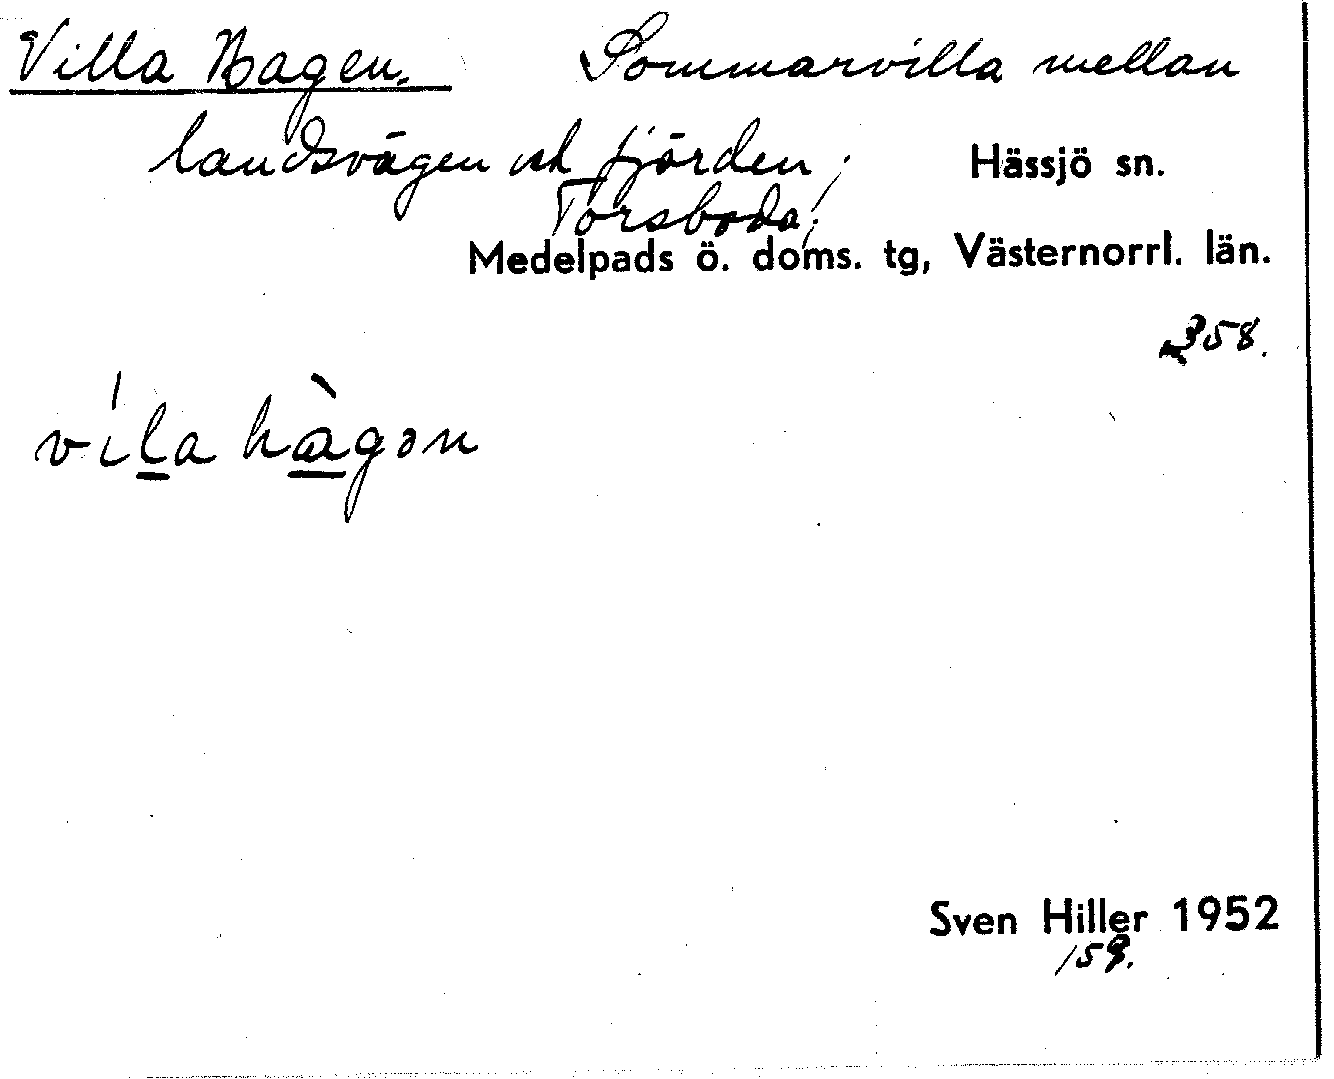 Villa Hagen. Sommarvilla mellan
landsvägen och fjärden; Hässjö sn.
Torsboda;
Medelpads ö. doms. tg, Västernorrl. län.
358.
víla hàgɔn
Sven Hiller 1952
159.